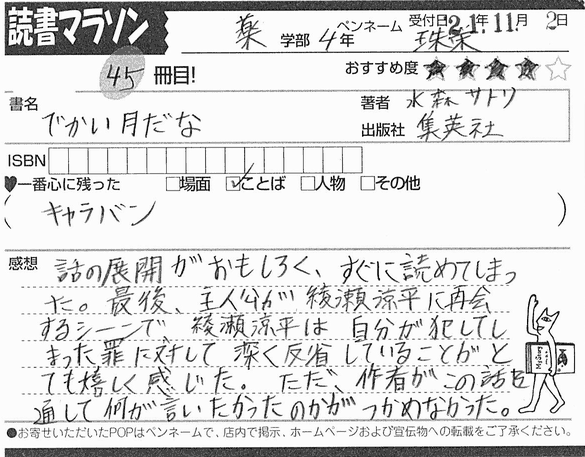 読書マラソン
薬 学部 4年 ペンネーム 珠栄 受付日 21年 11月 2日
45 冊目! おすすめ度 ★★★★☆
書名 でかい月だな 著者 水森サトリ
出版社 集英社
ISBN
♥一番心に残った □場面 ☑ことば □人物 □その他
( キャラバン )
感想 話の展開がおもしろく、すぐに読めてしまっ
た。最後、主人公が綾瀬涼平に再会
するシーンで、綾瀬涼平は自分が犯してし
まった罪に対して深く反省していることがと
ても嬉しく感じた。ただ、作者がこの話を
通して何が言いたかったのかがつかめなかった。
●お寄せいただいたPOPはペンネームで、店内で掲示、ホームページおよび宣伝物への転載をご了承ください。